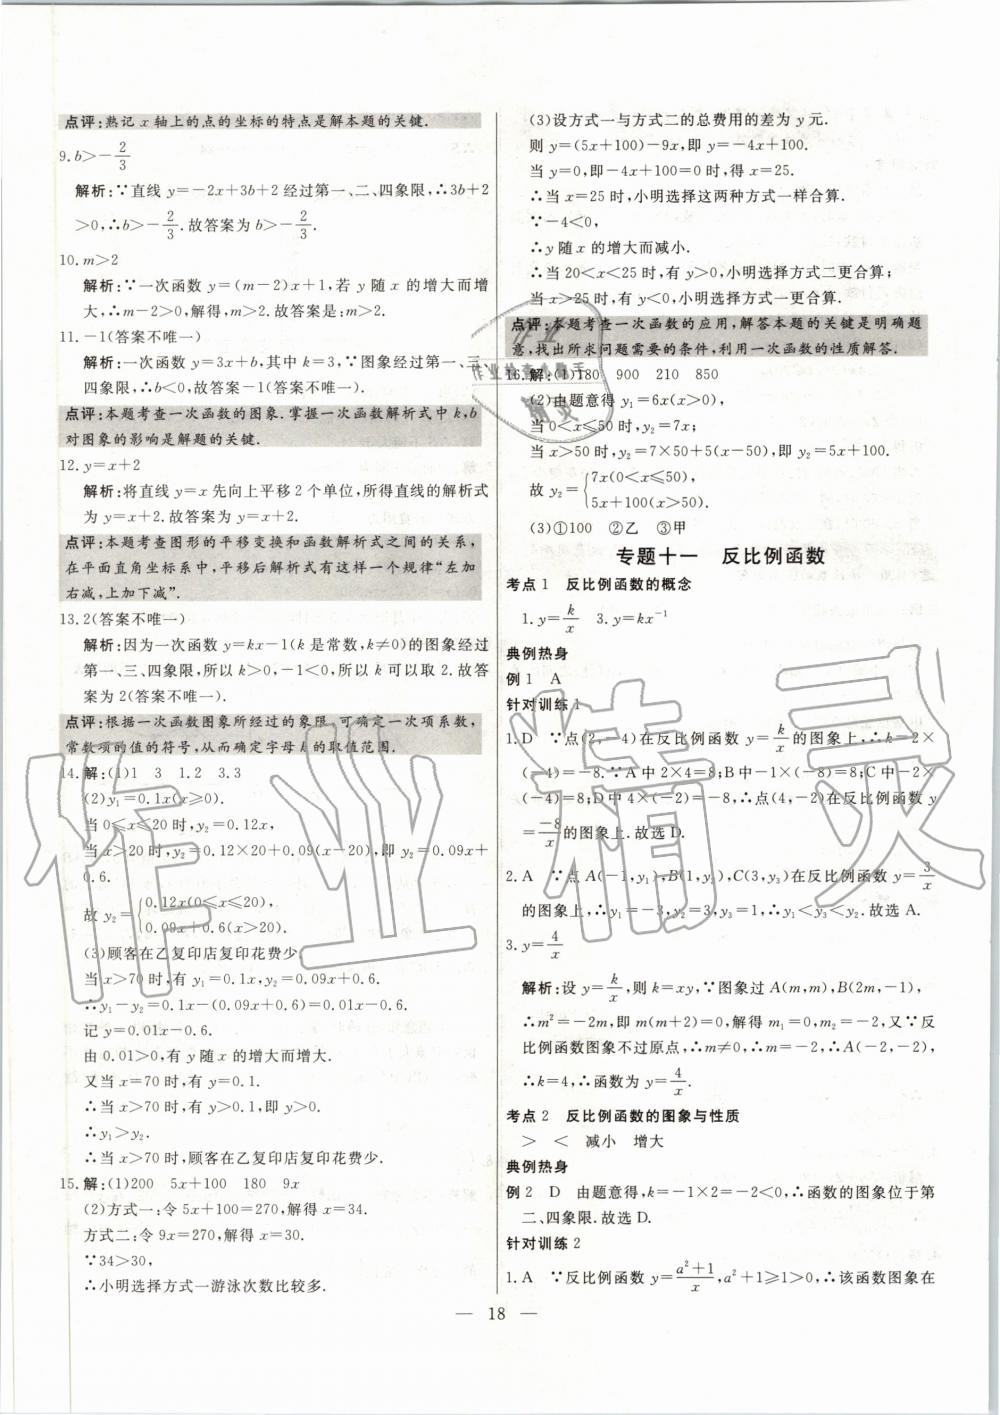 点评:熟记 x 轴上的点的坐标的特点是解本题的关键.
9.b>-2/3
解析:∵直线 y=-2x+3b+2 经过第一、二、四象限,∴3b+2
>0,∴b>-2/3.故答案为 b>-2/3.
10.m>2
解析:∵一次函数 y=(m-2)x+1,若 y 随 x 的增大而增
大,∴m-2>0,解得,m>2.故答案是:m>2.
11.-1(答案不唯一)
解析:一次函数 y=3x+b,其中 k=3,∵图象经过第一、三、
四象限,∴b<0,故答案-1(答案不唯一).
点评:本题考查一次函数的图象.掌握一次函数解析式中 k,b
对图象的影响是解题的关键.
12.y=x+2
解析:将直线 y=x 先向上平移 2 个单位,所得直线的解析式
为 y=x+2.故答案为 y=x+2.
点评:本题考查图形的平移变换和函数解析式之间的关系,
在平面直角坐标系中,平移后解析式有这样一个规律“左加
右减,上加下减”.
13.2(答案不唯一)
解析:因为一次函数 y=kx-1(k 是常数,k≠0)的图象经过
第一、三、四象限,所以 k>0,-1<0,所以 k 可以取 2.故答
案为 2(答案不唯一).
点评:根据一次函数图象所经过的象限,可确定一次项系数,
常数项的值的符号,从而确定字母 k 的取值范围.
14.解:(1)1 3 1.2 3.3
(2)y₁=0.1x(x≥0).
当 0≤x≤20 时,y₂=0.12x,
当 x>20 时,y₂=0.12×20+0.09(x-20),即 y₂=0.09x+
0.6.
故 y₂={0.12x(0≤x≤20),
0.09x+0.6(x>20).
(3)顾客在乙复印店复印花费少.
当 x>70 时,有 y₁=0.1x,y₂=0.09x+0.6.
∴y₁-y₂=0.1x-(0.09x+0.6)=0.01x-0.6.
记 y=0.01x-0.6.
由 0.01>0,有 y 随 x 的增大而增大.
又当 x=70 时,有 y=0.1.
∴当 x>70 时,有 y>0.1,即 y>0.
∴y₁>y₂.
∴当 x>70 时,顾客在乙复印店复印花费少.
15.解:(1)200 5x+100 180 9x
(2)方式一:令 5x+100=270,解得 x=34.
方式二:令 9x=270,解得 x=30.
∵34>30,
∴小明选择方式一游泳次数比较多.
(3)设方式一与方式二的总费用的差为 y 元.
则 y=(5x+100)-9x,即 y=-4x+100.
当 y=0 时,即-4x+100=0 时,得 x=25.
∴当 x=25 时,小明选择这两种方式一样合算.
∵-4<0,
∴y 随 x 的增大而减小.
∴当 20<x<25 时,有 y>0,小明选择方式二更合算;
当 x>25 时,有 y<0,小明选择方式一更合算.
点评:本题考查一次函数的应用,解答本题的关键是明确题
意,找出所求问题需要的条件,利用一次函数的性质解答.
16.解:(1)180 900 210 850
(2)由题意得 y₁=6x(x>0),
当 0<x≤50 时,y₂=7x;
当 x>50 时,y₂=7×50+5(x-50),即 y₂=5x+100.
故 y₂={7x(0<x≤50),
5x+100(x>50).
(3)①100 ②乙 ③甲
专题十一 反比例函数
考点 1 反比例函数的概念
1.y=k/x 3.y=kx⁻¹
典例热身
例 1 A
针对训练 1
1.D ∵点(2,-4)在反比例函数 y=k/x的图象上,∴k=2×
(-4)=-8.∵A 中 2×4=8;B 中-1×(-8)=8;C 中-2×
(-4)=8;D 中 4×(-2)=-8,∴点(4,-2)在反比例函数 y
=-8/x的图象上.故选 D.
2.A ∵点 A(-1,y₁),B(1,y₂),C(3,y₃)在反比例函数 y=3/x
的图象上,∴y₁=-3,y₂=3,y₃=1,∴y₁<y₃<y₂.故选 A.
3.y=4/x
解析:设 y=k/x,则 k=xy,∵图象过 A(m,m),B(2m,-1),
∴m²=-2m,即 m(m+2)=0,解得 m₁=0,m₂=-2,又∵反
比例函数图象不过原点,∴m≠0,∴m=-2,∴A(-2,-2),
∴k=4,∴函数为 y=4/x.
考点 2 反比例函数的图象与性质
> < 减小 增大
典例热身
例 2 D 由题意得,k=-1×2=-2<0,∴函数的图象位于第
二、四象限.故选 D.
针对训练 2
1.A ∵反比例函数 y=(a²+1)/x,a²+1≥1>0,∴该函数图象在
— 18 —
作业精灵